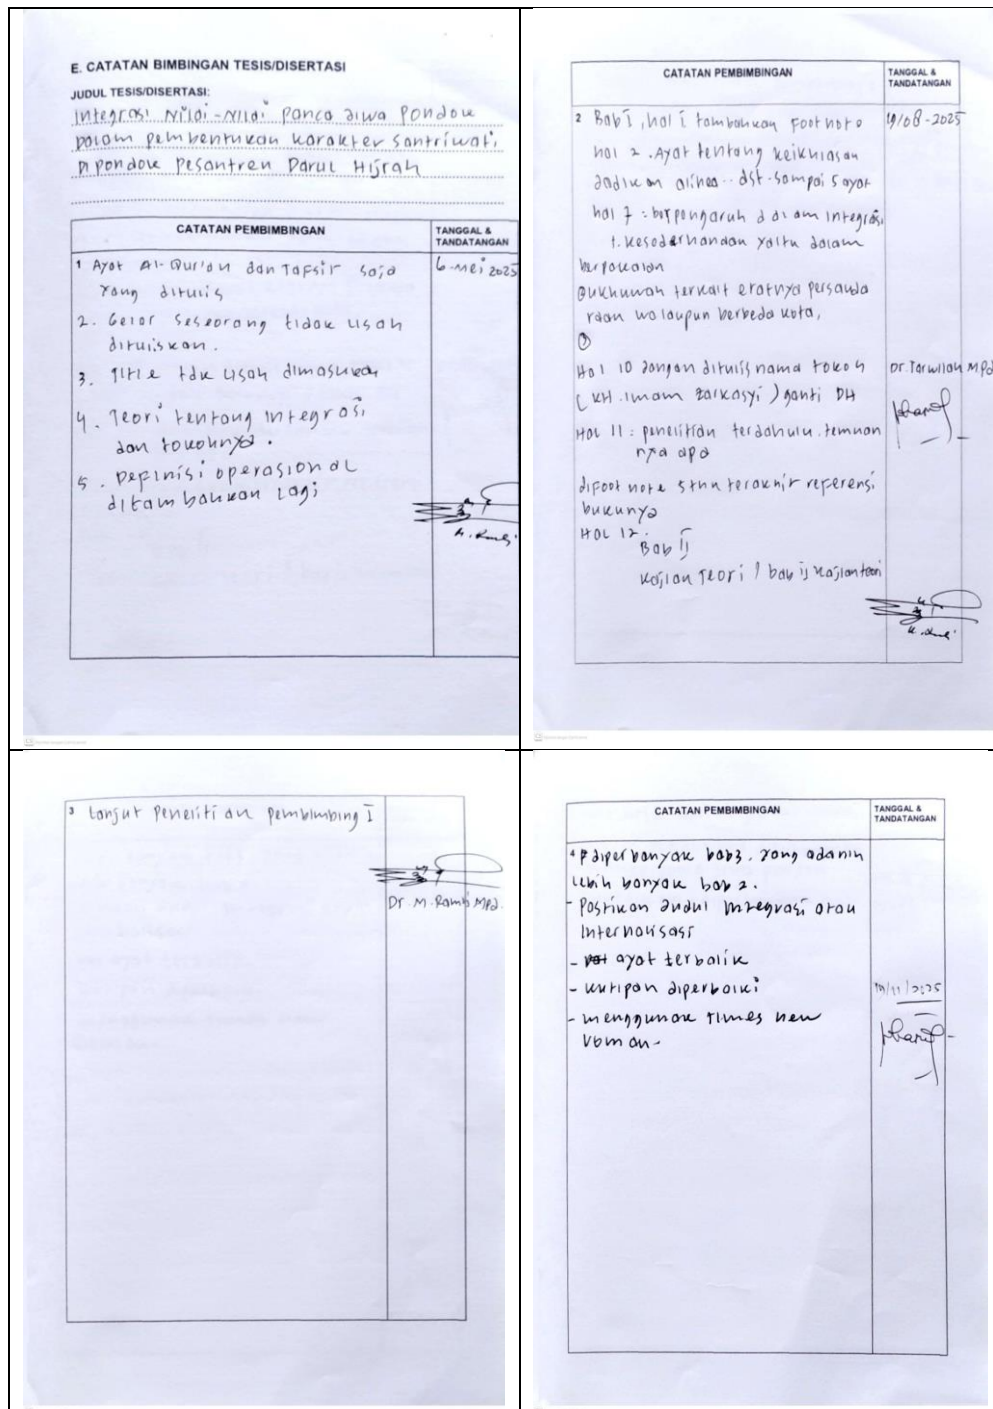 E. CATATAN BIMBINGAN TESIS/DISERTASI
JUDUL TESIS/DISERTASI:
Integrasi Nilai-Nilai Panca Jiwa Pondok
Dalam pembentukan karakter santriwati
Di pondok pesantren Darul Hijrah
CATATAN PEMBIMBINGAN
TANGGAL &
TANDATANGAN
1 Ayat Al-Qur'an dan Tafsir saja
yang ditulis
6 - Mei 2025
2. Gelar seseorang tidak usah
dituliskan.
3. Title tdk usah dimasukan
4. Teori tentang integrasi
dan tokohnya.
5. Definisi operasional
ditambahkan lagi
CATATAN PEMBIMBINGAN
TANGGAL &
TANDATANGAN
2 Bab I, hal 1 tambahkan Footnote
19/08-2025
hal 2. Ayat tentang keikhlasan
jadikan alinea.. dst-sampai 5 ayat
hal 7 : berpengaruh dalam integrasi
1. Kesederhanaan yaitu dalam
berpakaian
ukhuwah terkait eratnya persauda
raan walaupun berbeda kota,
③
Hal 10 jangan ditulis nama tokoh
Dr. Tarwilah M.Pd
(KH. Imam Zarkasyi) ganti DH
Hal 11 : penelitian terdahulu.temuan
nya apa
difootnote 5thn terakhir referensi
bukunya
Hal 12.
Bab II
Kajian Teori / bab ij kajian teori
3 Lanjut penelitian pembimbing I
Dr. M. Ramli M.Pd.
CATATAN PEMBIMBINGAN
TANGGAL &
TANDATANGAN
4 diperbanyak bab3. yang adanin
lebih banyak bab 2.
- Pastikan Judul Integrasi atau
Internalisasi
- ayat terbalik
- kutipan diperbaiki
- menggunak times new
roman-